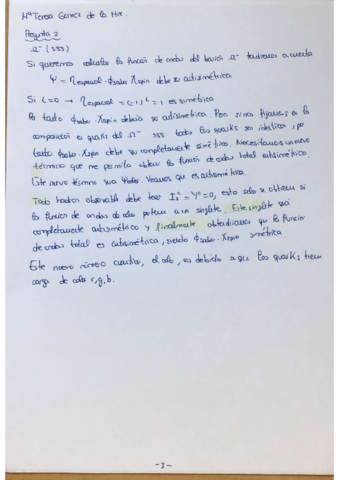 Mª Teresa García de la
Pregunta 2
Ω⁻ (sss)
Si queremos calcular la función de ondas del barión Ω⁻ tendremos en cuenta
Ψ = ηespacial · ϕsabor · χspin debe ser antisimétrica
Si L=0 → ηespacial = (-1)^L = 1 es simétrica
Por tanto ϕsabor · χspin debería ser antisimétrica. Pero si nos fijamos en la
composición en quarks del Ω⁻ sss todos los quarks son idénticos, por
tanto ϕsabor · χspin debe ser completamente simétrica. Necesitamos un nuevo
término que me permita obtener la función de ondas total antisimétrica.
Este nuevo término será ϕcolor. Veamos que es antisimétrica
Todo hadrón observable debe tener I₃ᶜ = Yᶜ = 0, esto solo se obtiene si
la función de ondas de color pertenece a un singlete. Este singlete será
completamente antisimétrico y finalmente obtendríamos que la función
de ondas total es antisimétrica, siendo ϕsabor · χspin simétrica
Este nuevo número cuántico, el color, es debido a que los quarks tienen
carga de color r, g, b.
-3-